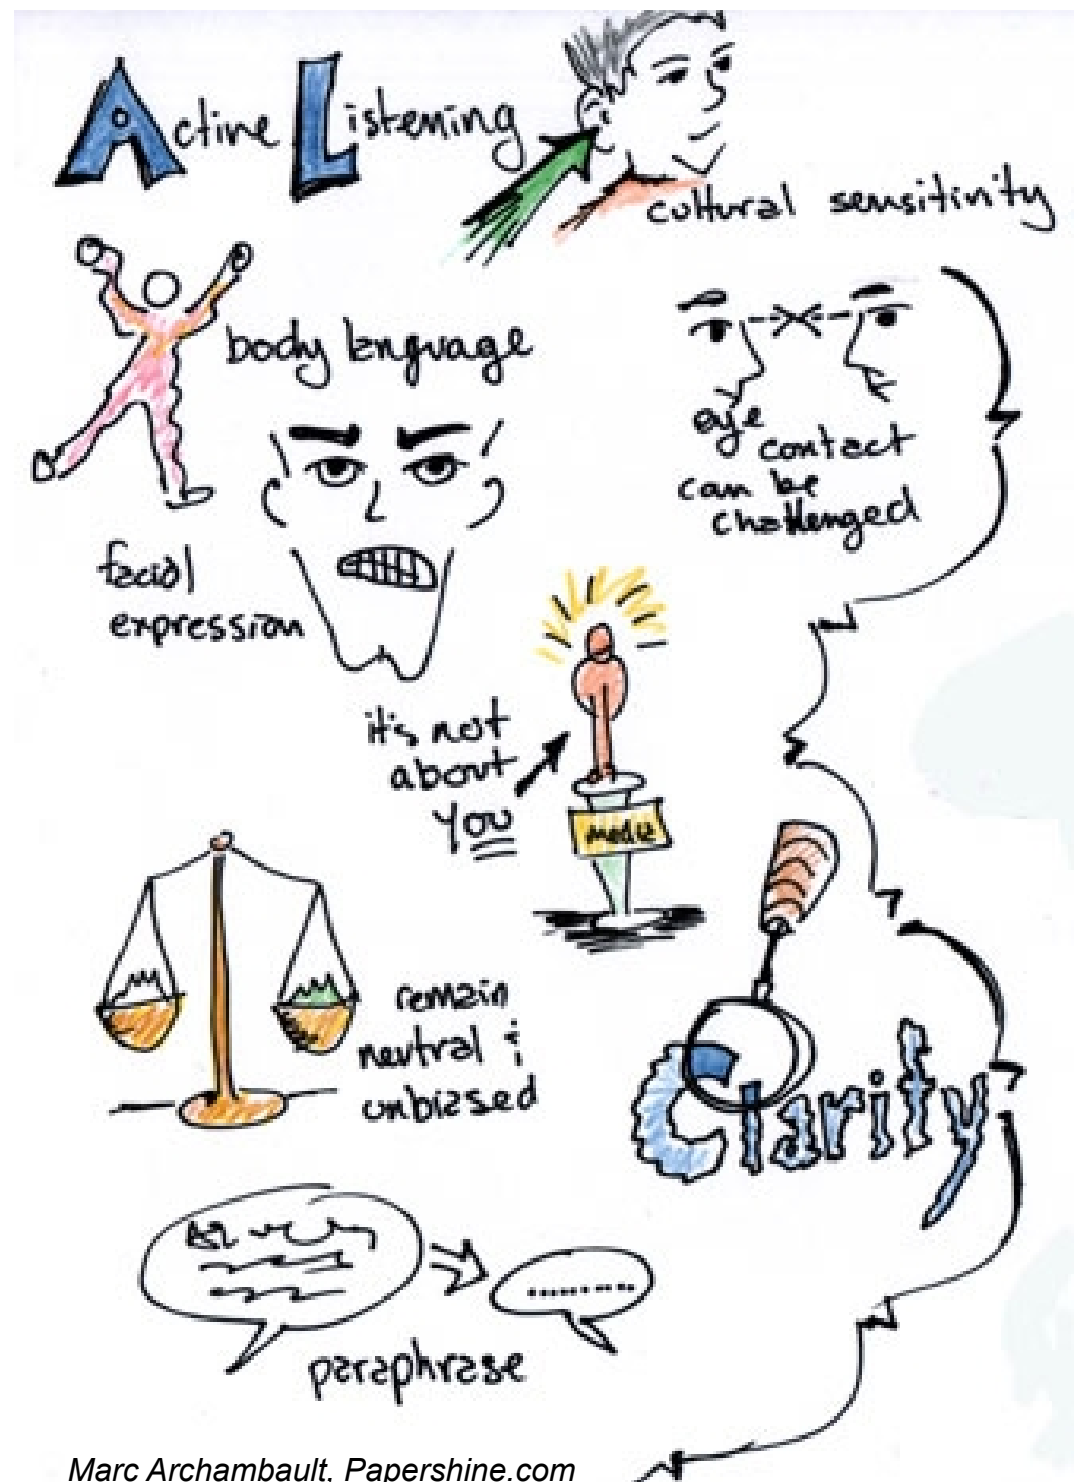 Active Listening
cultural sensitivity
body language
eye
contact
can be
challenged
facial
expression
it's not
about
you
media
remain
neutral &
unbiased
Clarity
paraphrase
Marc Archambault, Papershine.com